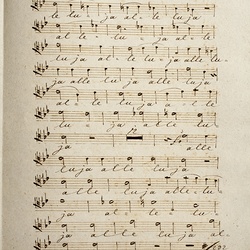 le lu ja al le lu ja
lu ja al le lu ja alle lu
ja alle lu ja alle lu ja
al le lu ja al le
lu ja al le lu
ja 12 alle
lu ja al le lu ja
alle lu ja alle lu
ja al le lu
ja al le lu